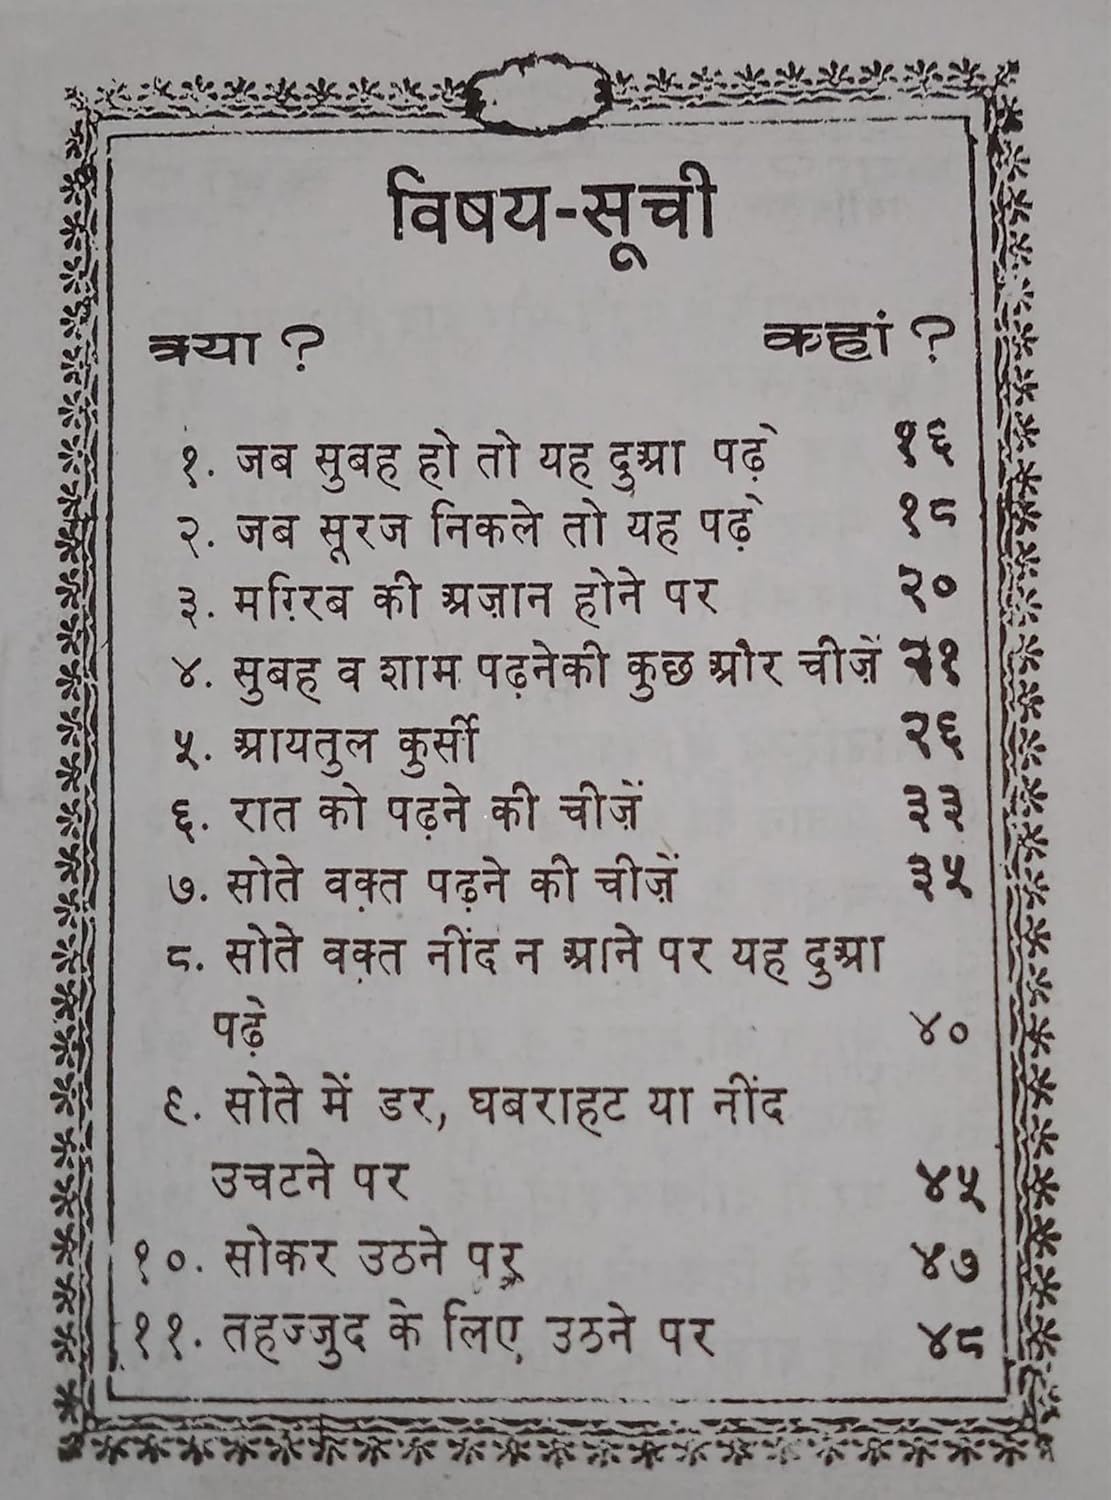 विषय-सूची
क्या ? कहां ?
१. जब सुबह हो तो यह दुआ पढ़े १६
२. जब सूरज निकले तो यह पढ़े १८
३. मग़्रिब की अज़ान होने पर २०
४. सुबह व शाम पढ़नेकी कुछ और चीज़ें २१
५. आयतुल कुर्सी २६
६. रात को पढ़ने की चीज़ें ३३
७. सोते वक़्त पढ़ने की चीज़ें ३५
८. सोते वक़्त नींद न आने पर यह दुआ
पढ़े ४०
९. सोते में डर, घबराहट या नींद
उचटने पर ४५
१०. सोकर उठने पर ४७
११. तहज्जुद के लिए उठने पर ४८